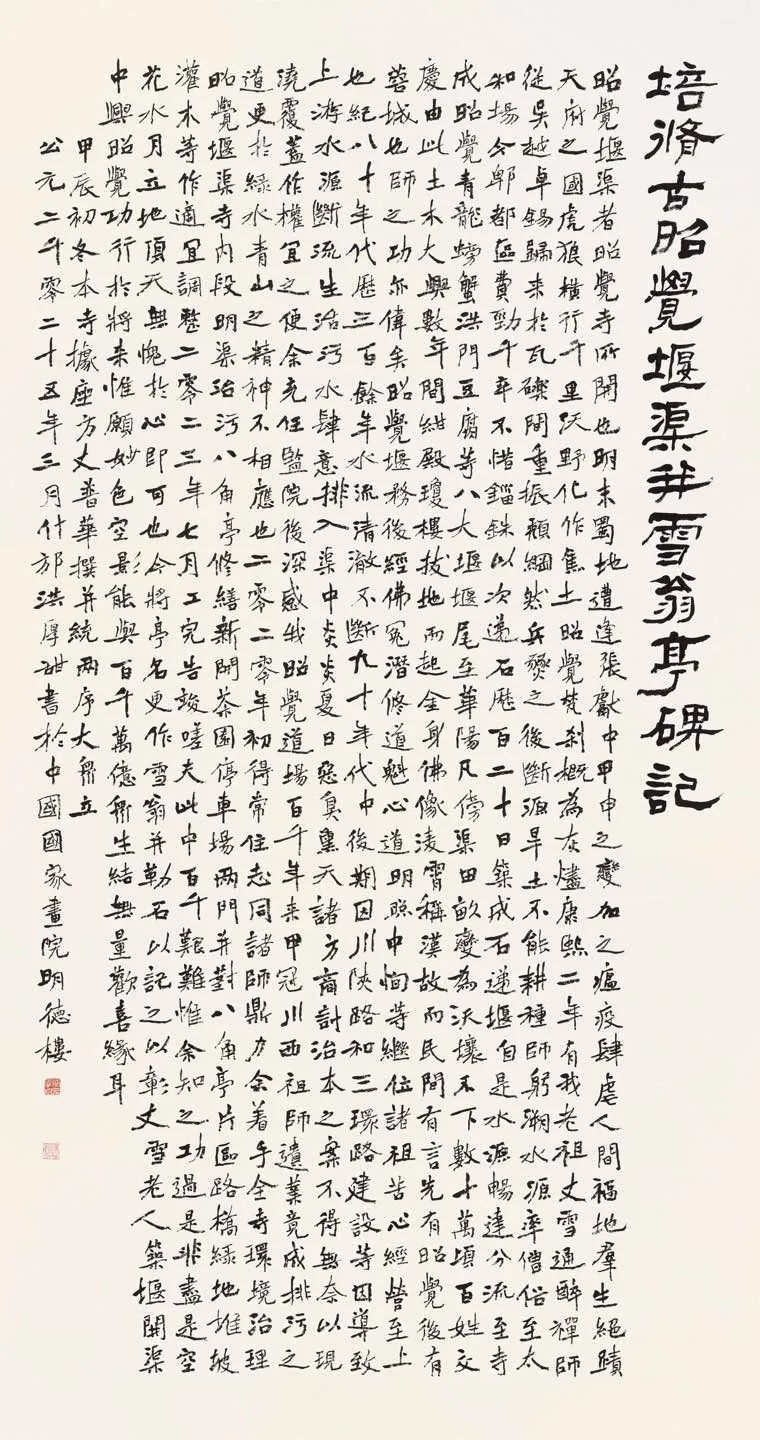 培脩古昭覺堰渠并雪翁亭碑記
昭覺堰渠者昭覺寺所開也明末蜀地遭逢張獻中甲申之變加之瘟疫肆虐人間福地羣生絕蹟
天府之國虎狼橫行千里沃野化作焦土昭覺梵刹概為灰燼康熙二年有我老祖丈雪通醉禪師
從吳越卓錫歸来於瓦礫間重振頽綱然兵燹之後斷源旱土不能耕種師躬溯水源率僧俗至太
和場今郫都區費勁千辛不惜錙銖以次遞石歷百二十日築成石遞堰自是水源暢達分流至寺
成昭覺青龍螃蟹洪門豆腐等八大堰堰尾至華陽凡傍渠田畝變為沃壤不下數十萬頃百姓交
慶由此土木大興數年間紺殿瓊樓拔地而起金身佛像淩霄稱漢故而民間有言先有昭覺後有
蓉城也師之功亦偉矣昭覺堰務後經佛冤潛修道魁心道明照中恂等繼位諸祖苦心經營至上
世紀八十年代歷三百餘年水流清澈不斷九十年代中後期因川陝路和三環路建設等因導致
上游水源斷流生活污水肆意排入渠中炎炎夏日惡臭熏天諸方商討治本之案不得無奈以現
澆覆蓋作權宜之便余充任監院後深感我昭覺道場百千年来甲冠川西祖師遺業竟成排污之
道更於綠水青山之精神不相應也二零二零年初得常住志同諸師鼎力余着手全寺環境治理
昭覺堰渠寺內段明渠治污八角亭修繕新開茶園停車場兩門并對八角亭片區路橋綠地堆坡
灌木等作適宜調整二零二三年七月工完告竣嗟夫此中百千艱難惟余知之功過是非盡是空
花水月立地頂天無愧於心即可也今將亭名更作雪翁并勒石以記之以彰丈雪老人築堰開渠
中興昭覺功行於將来惟願妙色空影能與百千萬億衆生結無量歡喜緣耳
甲辰初冬本寺據座方丈普華撰并統兩序大衆立
公元二千零二十五年三月什邡洪厚甜書於中國國家畫院明德樓